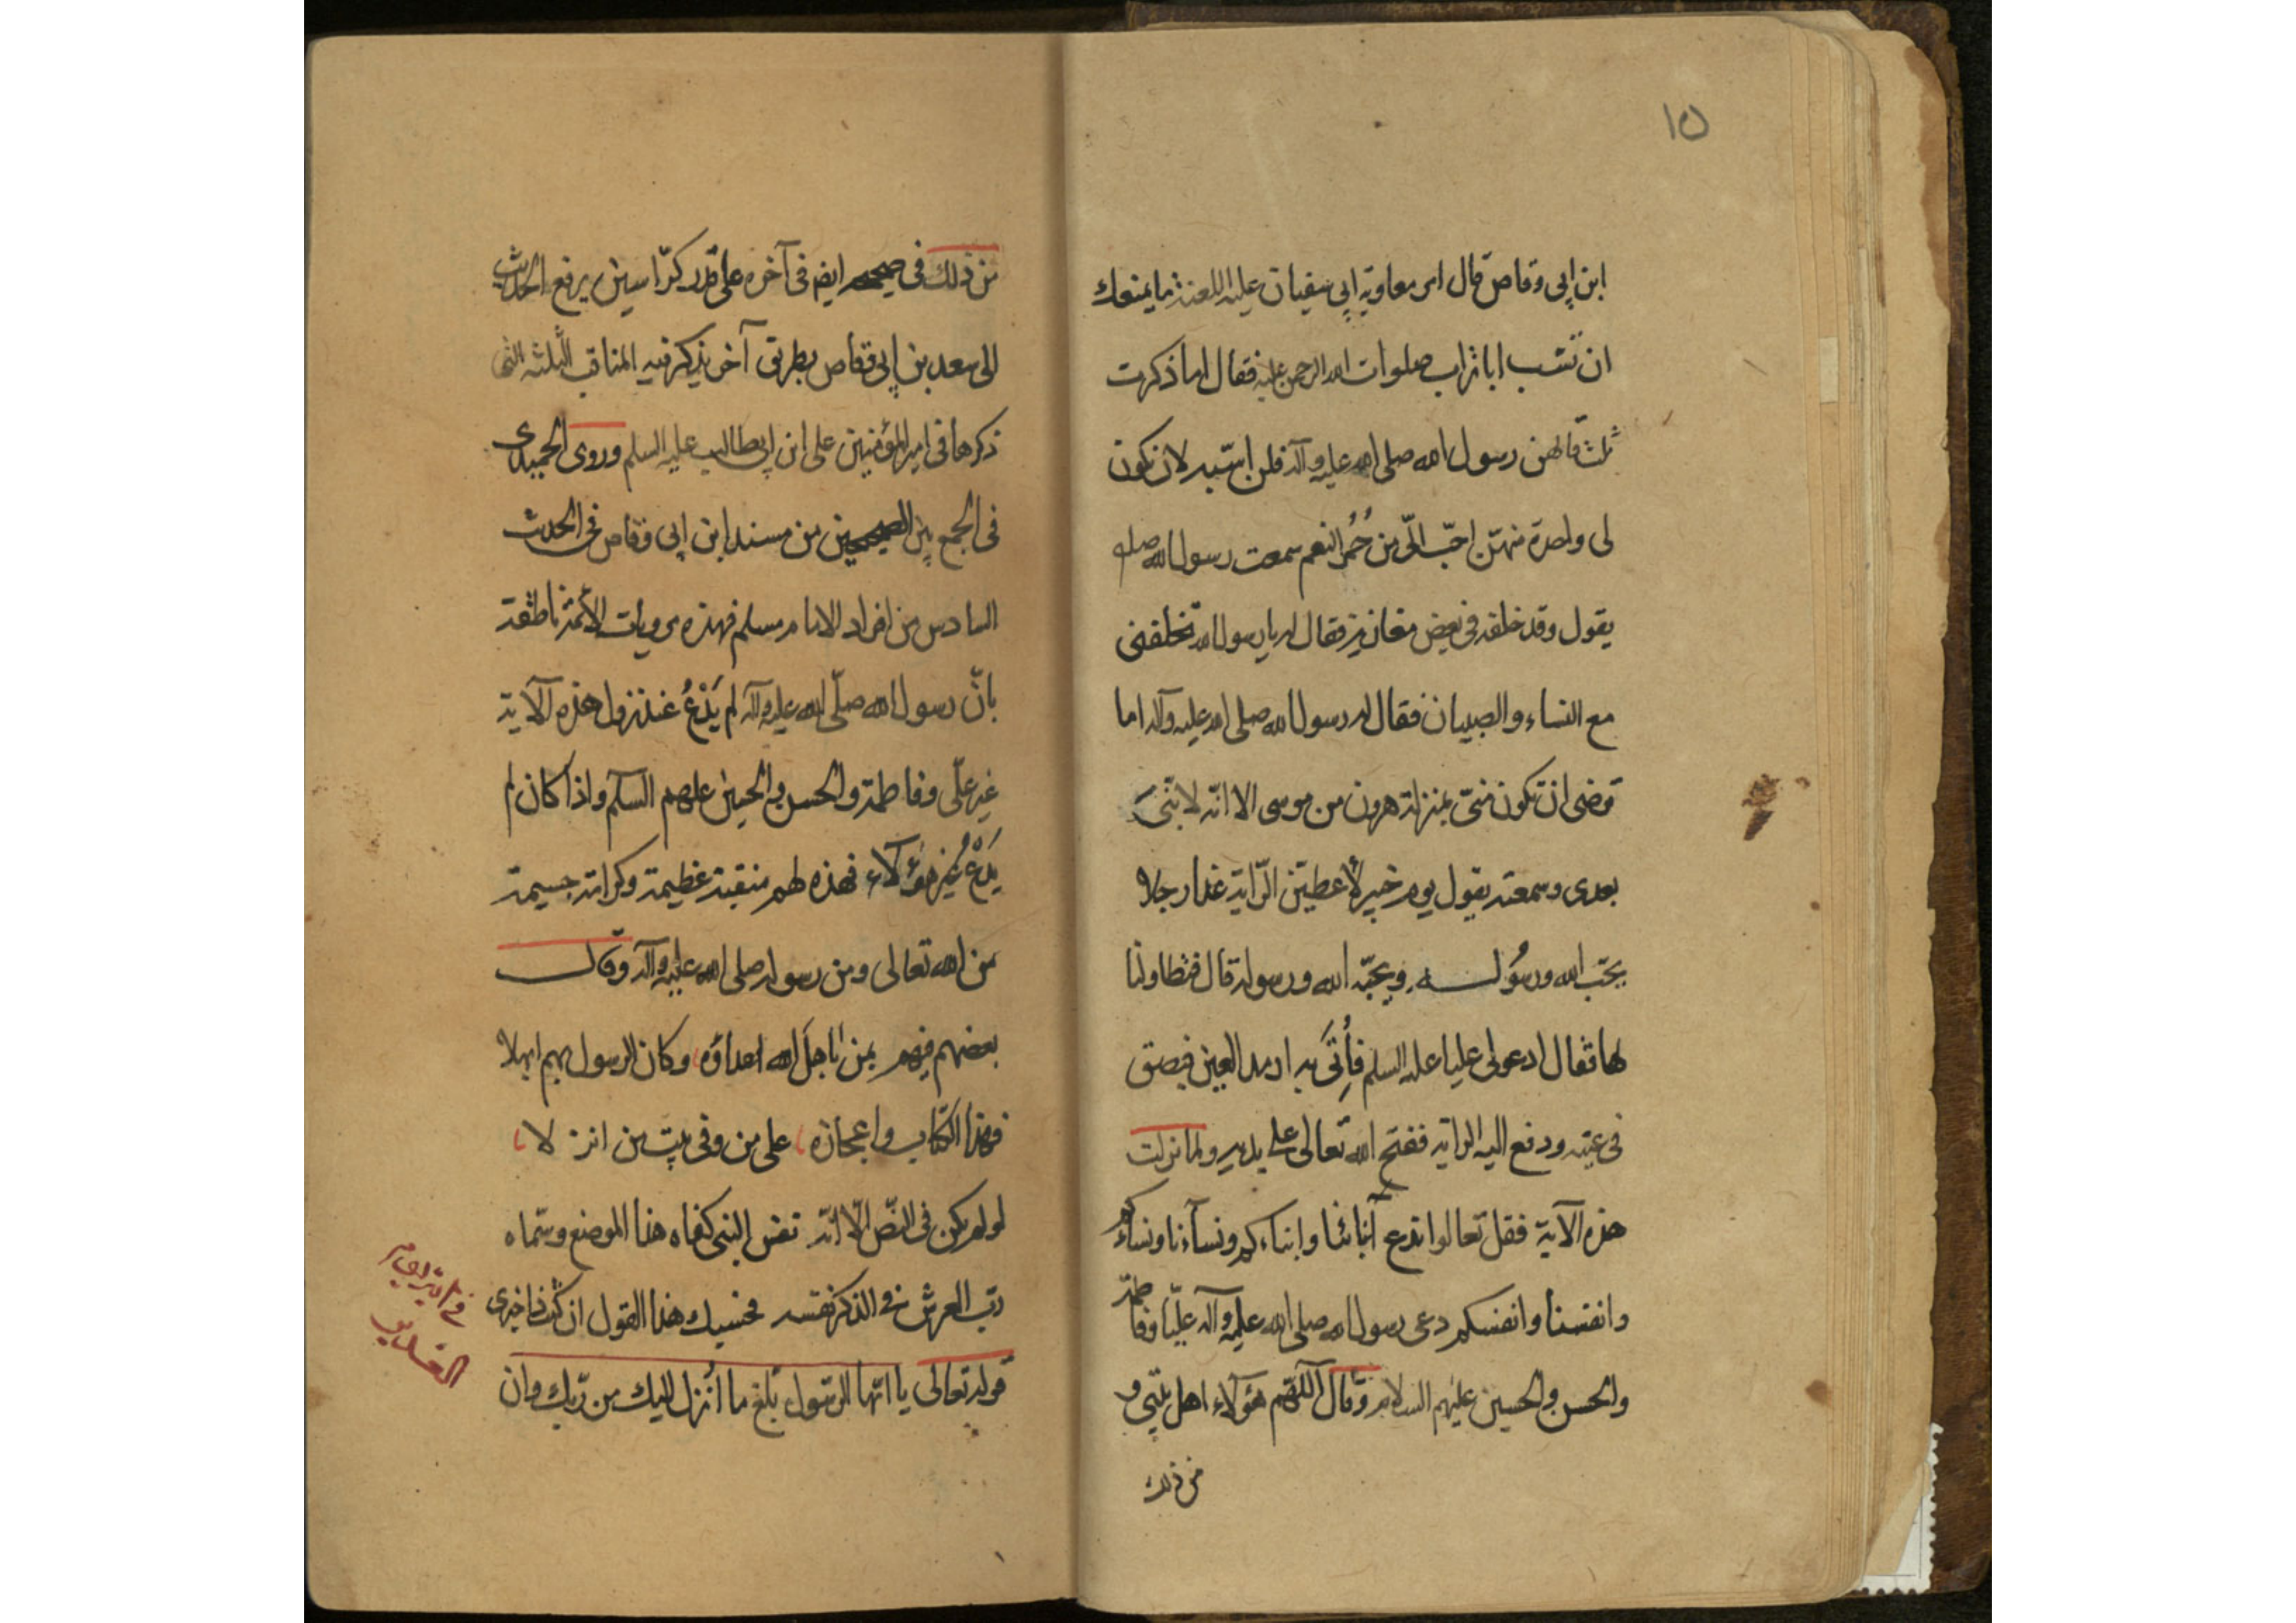 ١٥
ابن ابی وقاص قال امر معاوية ابی سفیان علیه اللعنة ما یمنعك
ان تسب ابا تراب صلوات الله الرحمن علیه فقال اما ذكرت
ثلث قالهن رسول الله صلی الله علیه وآله فلن اسبه لان تكون
لی واحدة منهنّ احبّ الیّ من حُمُر النعم سمعت رسول الله صلعم
یقول وقد خلفه فی بعض مغازیه فقال له یا رسول الله تخلفنی
مع النساء والصبیان فقال له رسول الله صلی الله علیه وآله اما
ترضی ان تكون منیّ بمنزلة هرون من موسی الا انّه لا نبیّ
بعدی وسمعته یقول یوم خیبر لأعطینّ الرّایة غدا رجلا
یحبّ الله ورسُوله ویحبّه الله ورسوله قال فتطاولنا
لها فقال ادعوا لی علیا علیه السلم فأُتیَ به ارمد العین فبصق
فی عینه ودفع الیه الرایة ففتح الله تعالی علی یدیه ولما نزلت
هذه الآیة فقل تعالوا ندع أبنائنا وابناءكم ونسآءنا ونساءكم
وانفسنا وانفسكم دعی رسول الله صلی الله علیه وآله علیّا وفاطمة
والحسن والحسین علیهم السلام وقال اللّهم هؤلاء اهل بیتی و
من ذلك
من ذلك فی صحیحه ایضا فی آخره علی قدر كرّاسین یرفع الحدیث
الی سعد بن ابی وقاص بطریق آخر یذكر فیه المناقب الثلثه التی
ذكرها فی امیر المؤمنین علی ابن ابیطالب علیه السلم وروی الحمیدی
فی الجمع بین الصحیحین من مسند ابن ابی وقاص فی الحدیث
السادس من افراد الامام مسلم فهذه مرویات الأئمة ناطقة
بانّ رسول الله صلّی الله علیه وآله لم یَدْعُ عند نزول هذه الآیة
غیر علّی وفاطمة والحسن والحسین علیهم السلم واذا كان لم
یَدْعُ غیر هؤلاء فهذه لهم منقبة عظیمة وكرامة جسیمة
من الله تعالی ومن رسوله صلی الله علیه وآله وقال
بعضهم فیهم بمن باهل الله اعداؤه وكان الرسول بهم ابهلا
فهذا الكتاب واعجازه علی من وفی بیت من انزلا
لو لم یكن فی النصّ الّا انّه نفس النبی كفاه هذا الموضع وسماه
ربّ العرش فی الذكر نفسه فحسبك هذا القول ان كنت ذا خبری
قوله تعالی یا ایّها الرّسول بلّغ ما اُنزل الیك من ربّك وان
الغدیر